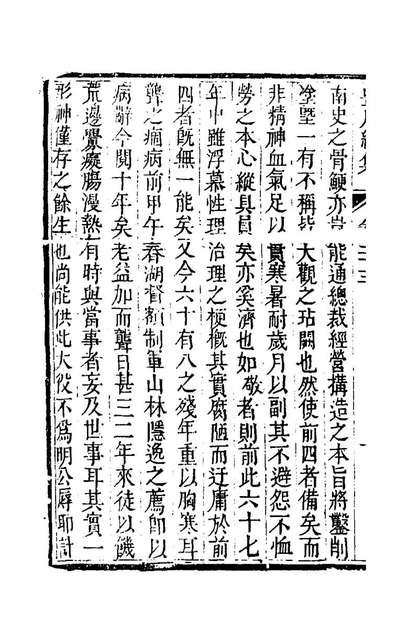 南史之骨鯁亦豈能通總裁經營搆造之本旨將鑿削
塗塈一有不稱皆大觀之玷闕也然使前四者備矣而
非精神血氣足以貫寒暑耐歲月以副其不避怨不恤
勞之本心縱具員矣亦奚濟也如敬者則前此六十七
年中雖浮慕性理治理之梗概其實腐陋而迂庸於前
四者既無一能矣又今六十有八之殘年重以胸寒耳
聾之痼病前甲午春湖督額制軍山林隱逸之薦即以
病辭今閱十年矣老益加而聾日甚三二年來徒以饑
荒邊釁癡腸漫熱有時與當事者妄及世事耳其實一
形神僅存之餘生也尚能供此大役不為明公辱耶計